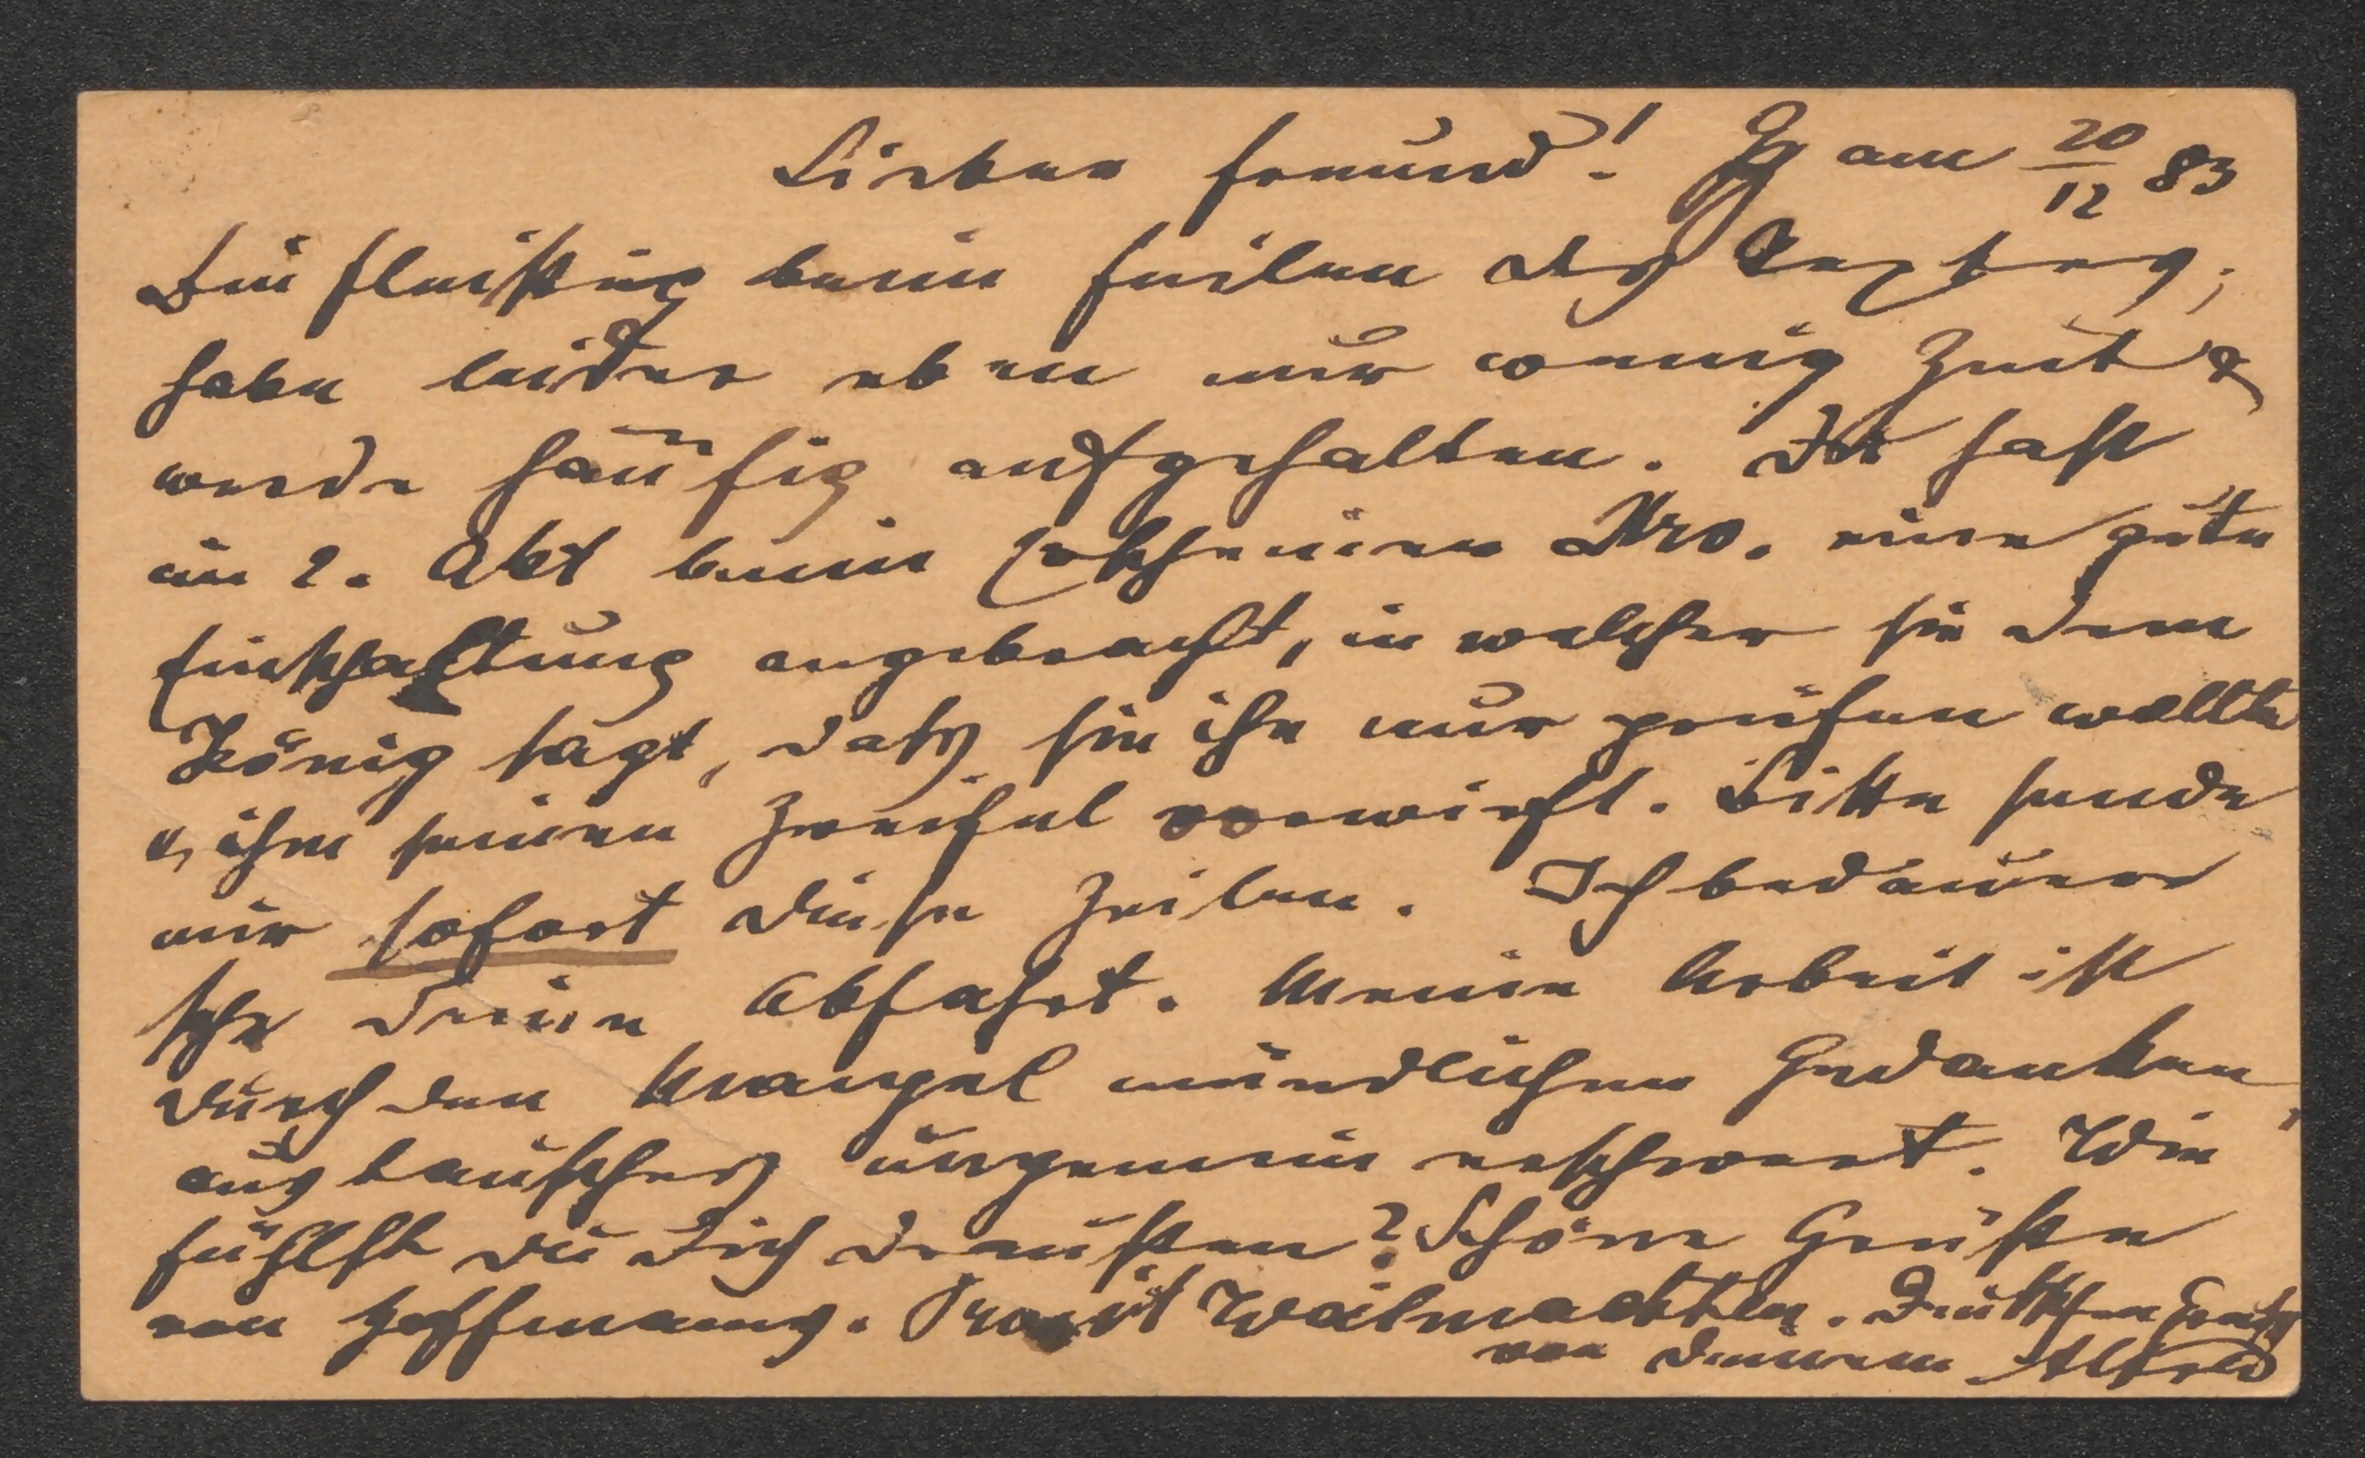 Lieber Freund! Gg am 20/12 83
Bin fleißig beim Feilen des Textes;
habe leider eben nur wenig Zeit &
werde häufig aufgehalten. Du hast
im 2. Akt beim Erscheinen No. eine gute
Einschaltung angebracht, in welcher sie dem
König sagt, daß sie ihn nur prüfen wollte
u, ihm seinen Zweifel vorwirft. Bitte sende
mir sofort diese Zeilen. Ich bedauere
sehr Deine Abfahrt. Meine Arbeit ist
durch den Mangel mündlichen Gedanken,
austausches ungemein erschwert. Wie
fühlst du Dich draußen? Schöne Grüße
von Hoffmanns. Prosit Weihnachten. Deutschen Gruß
von Deinem Alfred